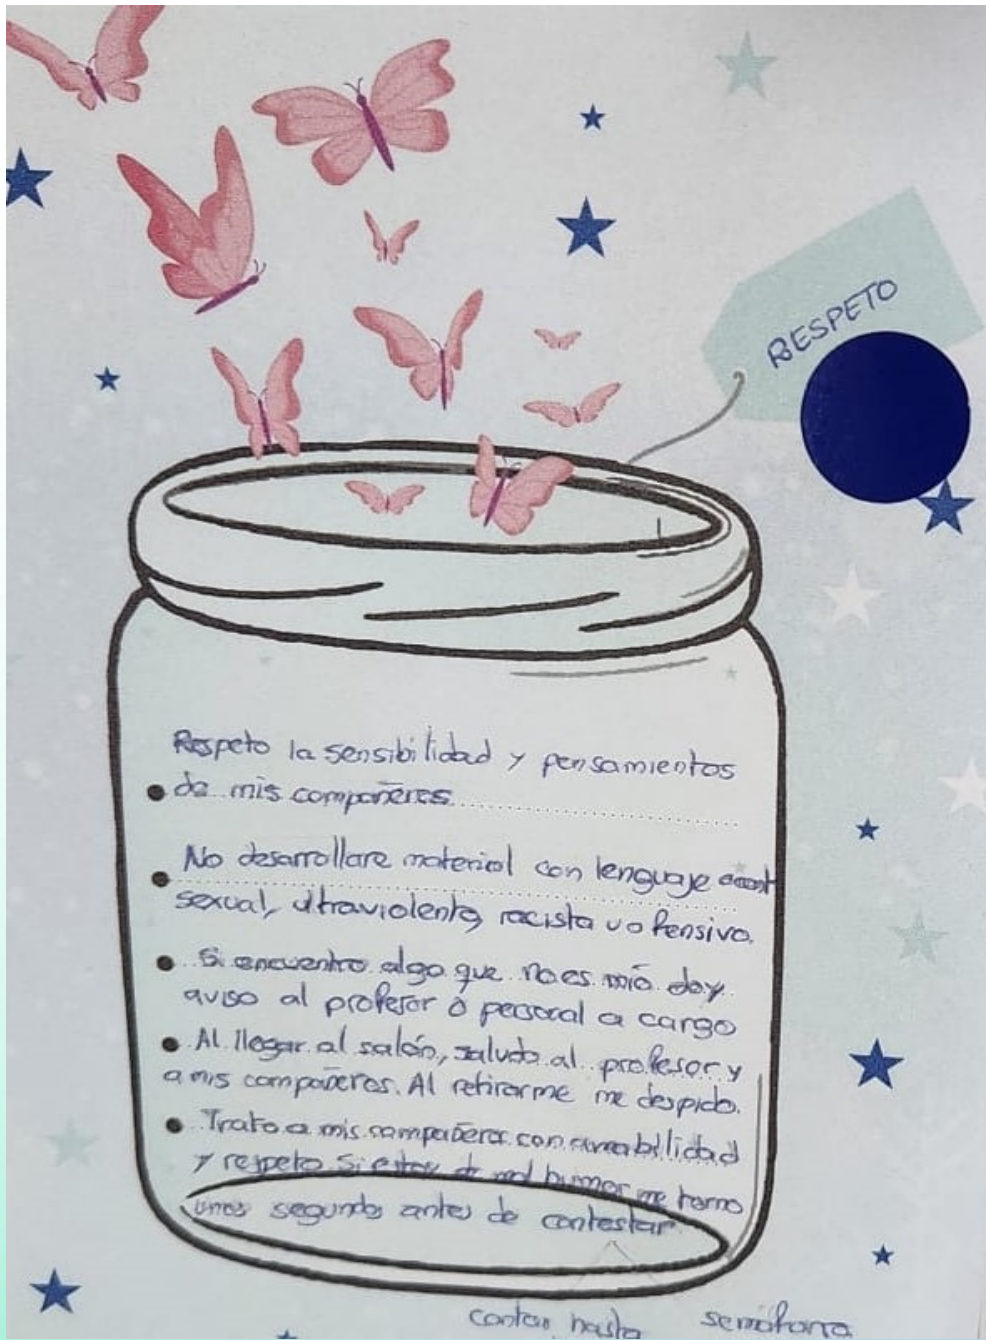 RESPETO
Respeto la sensibilidad y pensamientos
de mis compañeros
No desarrollare material con lenguaje
sexual, ultraviolento, racista u ofensivo.
Si encuentro algo que no es mío doy
aviso al profesor o personal a cargo
Al llegar al salón, saludo al profesor y
a mis compañeros. Al retirarme me despido.
Trato a mis compañeros con amabilidad
y respeto. Si estoy de mal humor me tomo
unos segundos antes de contestar
contar hasta semáforo